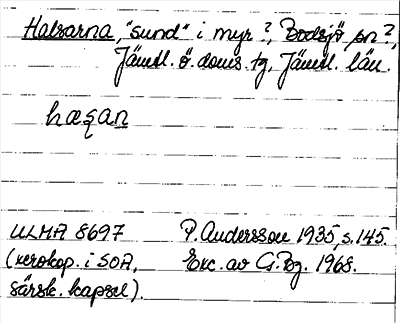 Halsarna, "sund" i myr?, Bodsjö sn?,
Jämtl. ö. doms. tg, Jämtl. län.
hæşan
ULMA 8697 P. Andersson 1935, s. 145.
(xerokop. i SOA, Exc. av G. Bg. 1968.
särsk. kapsel).